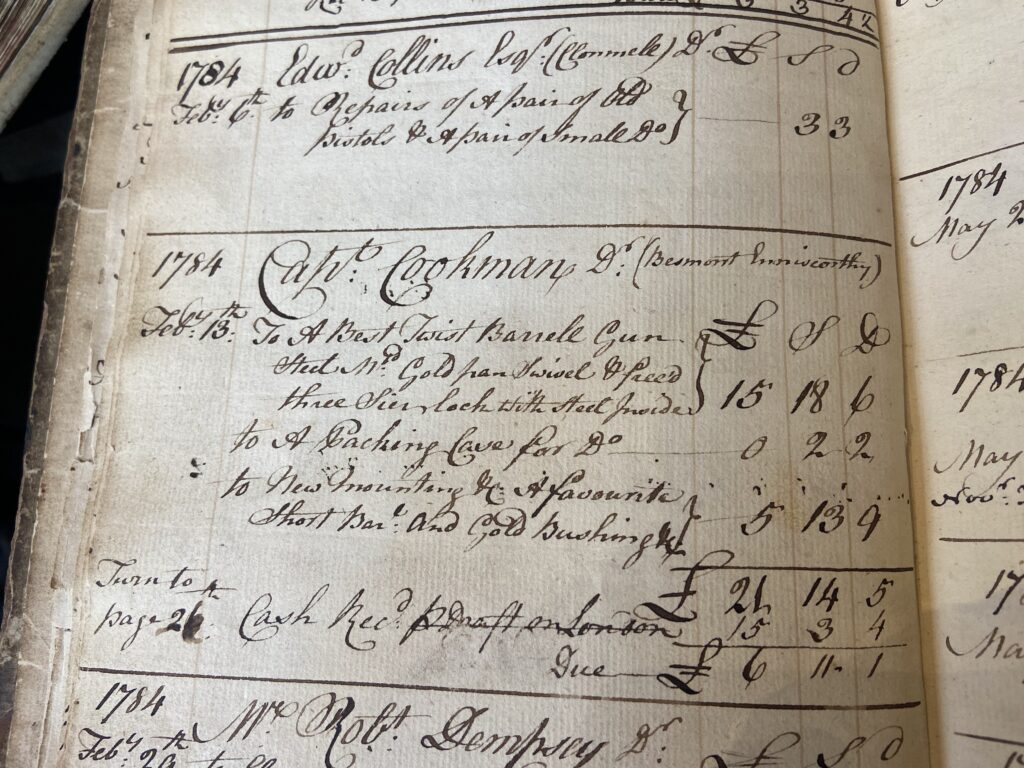 3 4½
1784 Edwd. Collins Esqr. (Clonmele) Dr. £ S d
Feby. 6th to Repairs of A pair of Old
pistols & A pair of Small Do } 3 3
1784 Capt. Cookman Dr. (Besmont Enniscorthy)
Feby. 13th To A Best Twist Barrell Gun £ S D
Steel Md Gold pan Swivel & freed
three Sier lock with Steel Inside } 15 18 6
to A Packing Case for Do 0 2 2
to New mounting &c A favourite
Short Barl. And Gold Bushing &c } 5 13 9
Turn to £ 21 14 5
page 26th Cash Recd. pr Draft on London 15 3 4
Due £ 6 11 1
1784 Mr. Robt. Dempsey Dr.
Feby 23th £ S d
1784
May 2
1784
May
Novr.